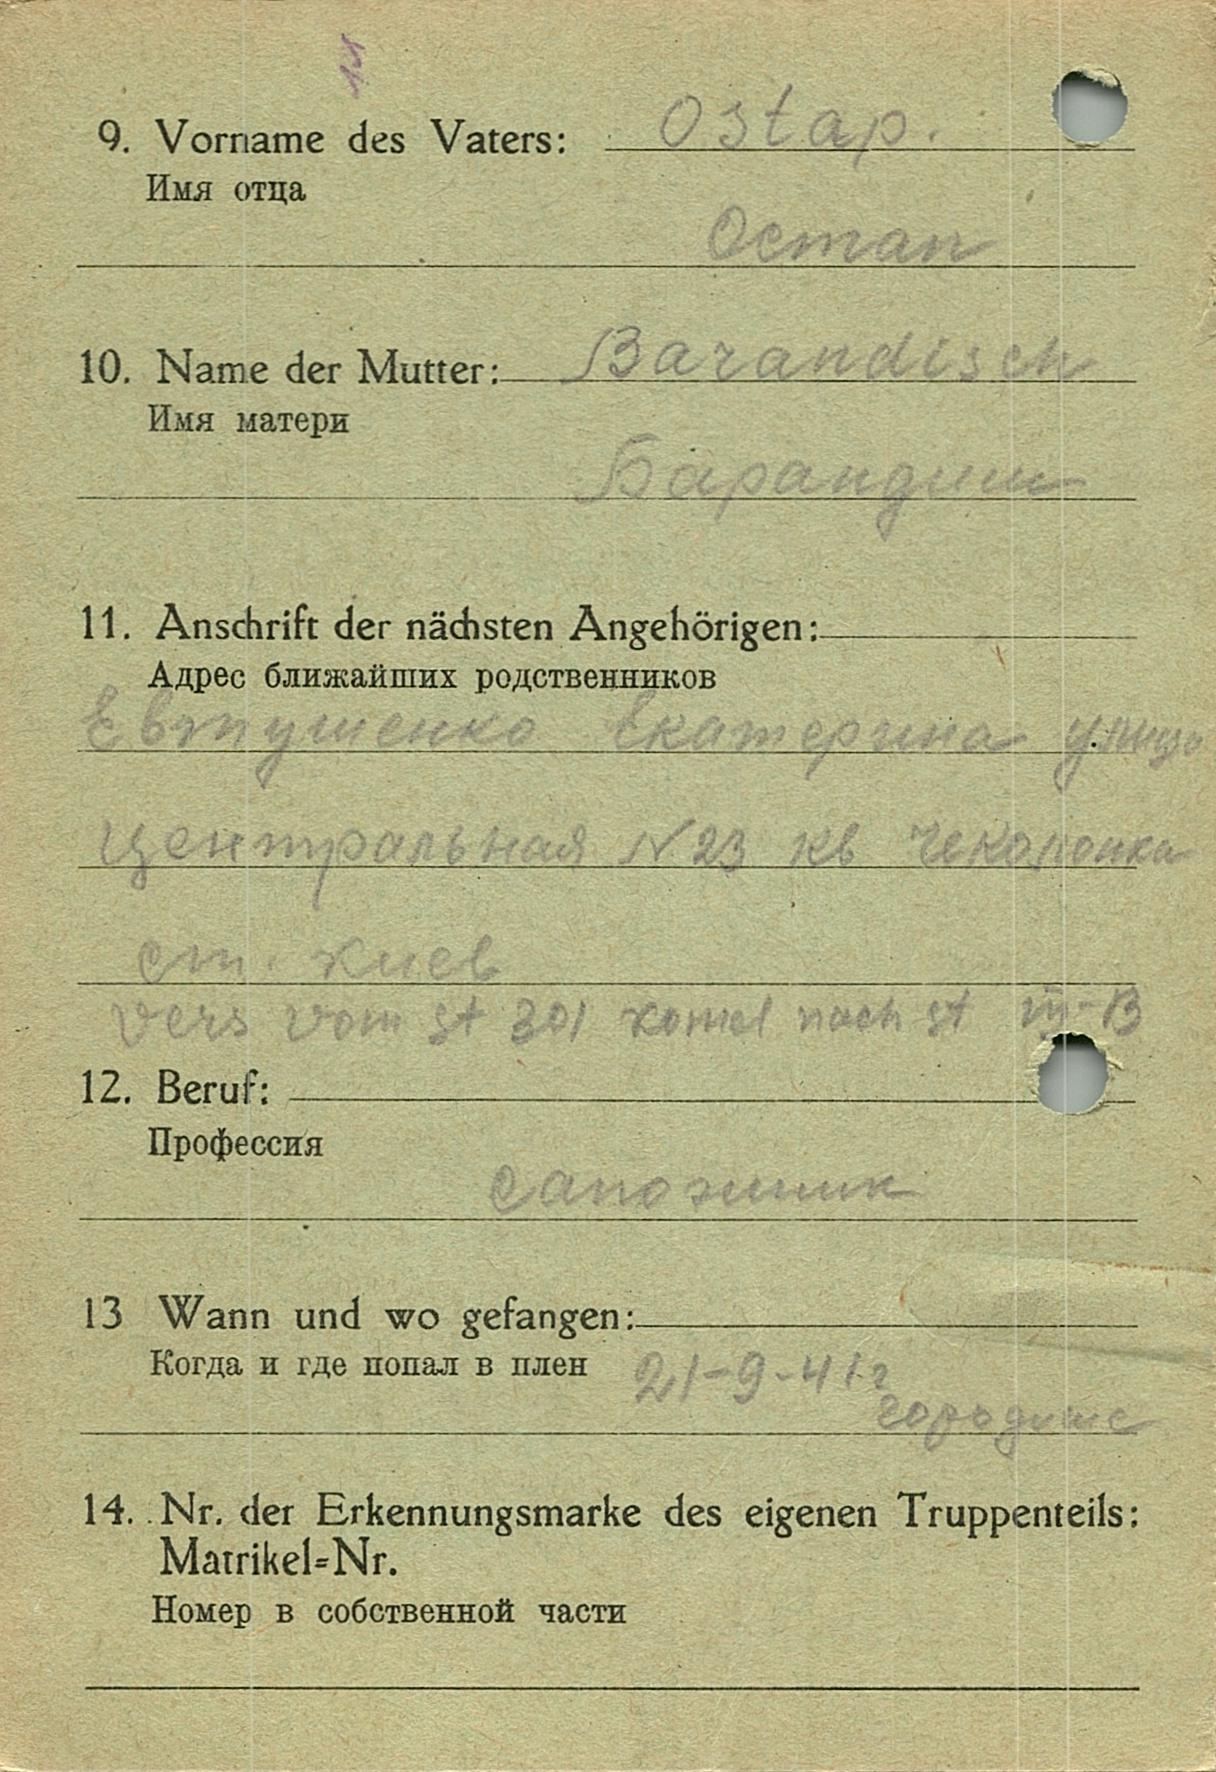 9. Vorname des Vaters: Ostap.
Имя отца
Остап
10. Name der Mutter: Barandisch
Имя матери
Барандиш
11. Anschrift der nächsten Angehörigen:
Адрес ближайших родственников
Евтушенко Екатерина улица
Центральная N 23 кв Чеколовка
ст. Киев
Vers vom st 301 nach st III-B
12. Beruf:
Профессия
Сапожник
13 Wann und wo gefangen:
Когда и где попал в плен 21-9-41г
Городище
14. Nr. der Erkennungsmarke des eigenen Truppenteils:
Matrikel=Nr.
Номер в собственной части